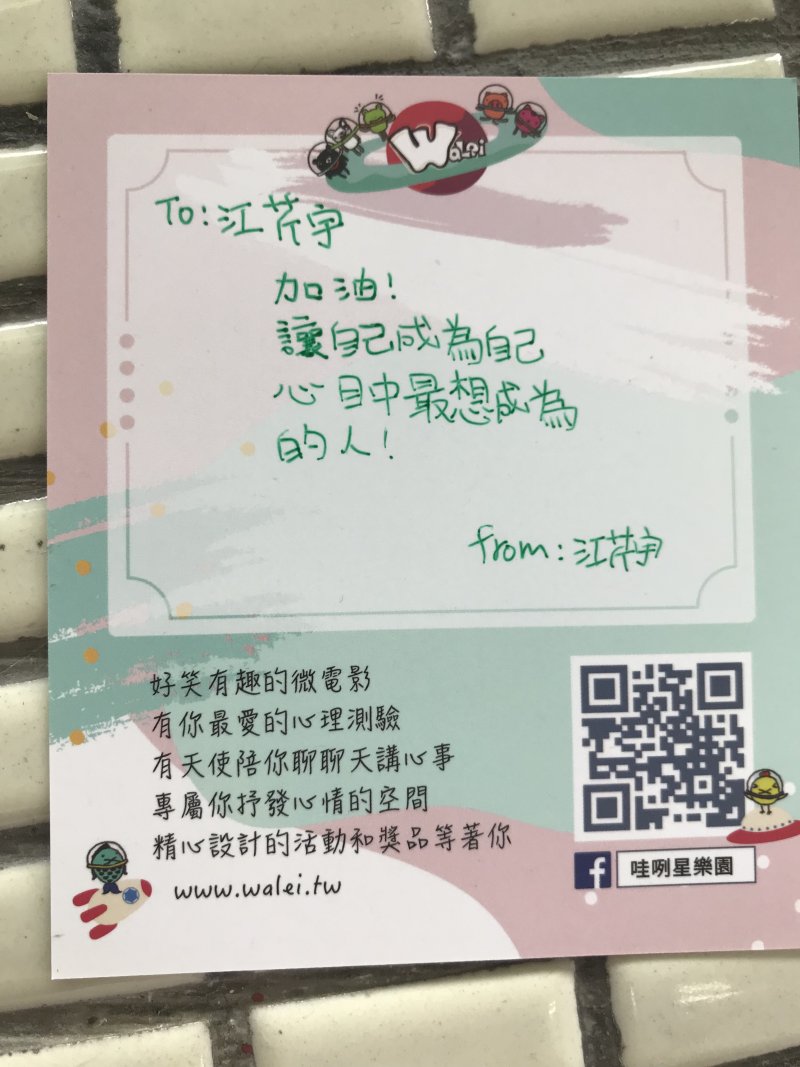 Walei
To：江芹宇
加油！
讓自己成為自己
心目中最想成為
的人！
from：江芹宇
好笑有趣的微電影
有你最愛的心理測驗
有天使陪你聊聊天講心事
專屬你抒發心情的空間
精心設計的活動和獎品等著你
www.walei.tw
f 哇咧星樂園